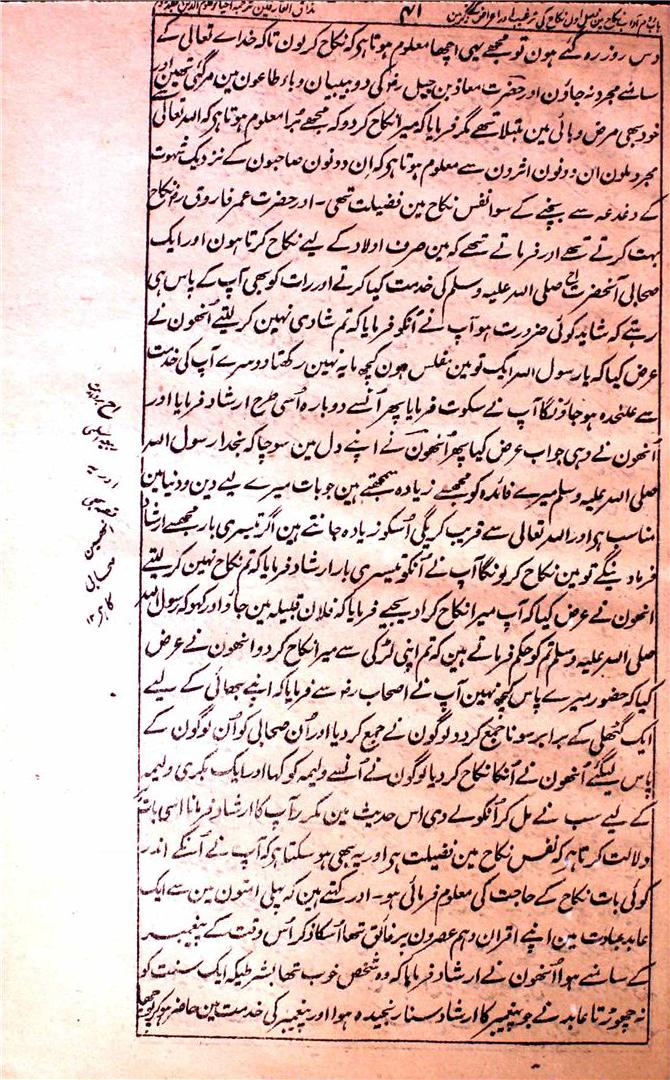 باب دوم آداب نکاح مین فصل اول نکاح کی ترغیب اور اعراض کے ذکر مین ۴۱ مذاق العارفین ترجمہ احیاء علوم الدین جلد
دس روز رہ گئے ہون تو مجھے یہی اچھا معلوم ہوتا ہو کہ نکاح کر لون تاکہ خداے تعالی کے
سامنے مجرد نہ جاؤن اور حضرت معاذ بن جبل رض کی دو بیبیان وباء طاعون مین مر گئی تھین اور
خود بھی مرض وبائی مین مبتلا تھے مگر فرمایا کہ میرا نکاح کر دو کہ مجھے برا معلوم ہوتا ہو کہ اللہ تعالی سے
مجرد ملون ان دونون اثرون سے معلوم ہوتا ہو کہ ان دونون صاحبون کے نزدیک شہوت
کے دغدغہ سے بچنے کے سوا نفس نکاح مین فضیلت تھی۔ اور حضرت عمر فاروق رض نکاح
بہت کرتے تھے اور فرماتے تھے کہ مین صرف اولاد کے لیے نکاح کرتا ہون اور ایک
صحابی آنحضرت صلی اللہ علیہ وسلم کی خدمت کیا کرتے اور رات کو بھی آپ کے پاس ہی
رہتے کہ شاید کوئی ضرورت ہو آپ نے اُنکو فرمایا کہ تم شادی نہین کر لیتے اُنھون نے
عرض کیا کہ یا رسول اللہ ایک تو مین مفلس ہون کچھ مایہ نہین رکھتا دوسرے آپ کی خدمت
سے علٰحدہ ہو جاؤنگا آپ نے سکوت فرمایا پھر اُنسے دوبارہ اُسی طرح ارشاد فرمایا اور
اُنھون نے وہی جواب عرض کیا پھر اُنھون نے اپنے دل مین سوچا کہ بخدا رسول اللہ
صلی اللہ علیہ وسلم میرے فائدہ کو مجھسے زیادہ سمجھتے ہین جو بات میرے لیے دین و دنیا مین
مناسب ہو اور اللہ تعالی سے قریب کریگی اُسکو زیادہ جانتے ہین اگر تیسری بار مجھسے ارشاد
فرماوینگے تو مین نکاح کر لونگا آپ نے اُنکو تیسری بار ارشاد فرمایا کہ تم نکاح نہین کر لیتے
انھون نے عرض کیا کہ آپ میرا نکاح کرا دیجیے فرمایا کہ فلان قبیلہ مین جاؤ اور کہو کہ رسول اللہ
صلی اللہ علیہ وسلم تم کو حکم فرماتے ہین کہ تم اپنی لڑکی سے میرا نکاح کر دو انھون نے عرض
کیا کہ حضور میرے پاس کچھ نہین آپ نے اصحاب رض سے فرمایا کہ اپنے بھائی کے لیے
ایک گٹھلی کے برابر سونا جمع کر دو لوگون نے جمع کر دیا اور اُن صحابی کو اُن لوگون کے
پاس لیگئے اُنھون نے اُنکا نکاح کر دیا لوگون نے اُنسے ولیمہ کو کہا اور ایک بکری ولیمہ
کے لیے سب نے مل کر اُنکو لے دی اس حدیث مین مکرر آپ کا ارشاد فرمانا اسی بات پر
دلالت کرتا ہو کہ نفس نکاح مین فضیلت ہو اور یہ بھی ہو سکتا ہو کہ آپ نے اُنکے اندر
کوئی بات نکاح کے حاجت کی معلوم فرمائی ہو۔ اور کہتے ہین کہ پہلی امتون مین سے ایک
عابد عبادت مین اپنے اقران و ہم عصرون پر فائق تھا اُسکا ذکر اُس وقت کے پیغمبر
کے سامنے ہوا اُنھون نے ارشاد فرمایا کہ وہ شخص خوب تھا بشرطیکہ ایک سنت کو
نہ چھوڑتا عابد نے جو پیغمبر کا ارشاد سنا رنجیدہ ہوا اور پیغمبر کی خدمت مین حاضر ہو کر پوچھا